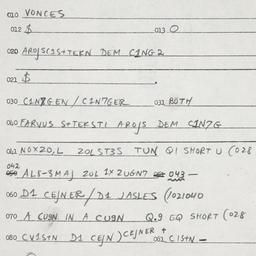 010 VONCES
012 $ 013 O
020 AROJSC1S+TEKN DEM C1NG2
021 $
030 C1N7GEN / C1N7GER 031 BOTH
040 FARVUS S+TEKSTI AROJS DEM C1N7G
041 NOX20,L 20LST3S TUN Q1 SHORT U (028
042 ALS-3MAJ 20L 1X2UGN7 043 —
060 D1 CEJNER / D1 JASLES (1021040
070 A CU9N IN A CU9N Q.9 EQ SHORT (028
080 CV1S+N D1 CEJN) CEJNER + 081 C1S+N —